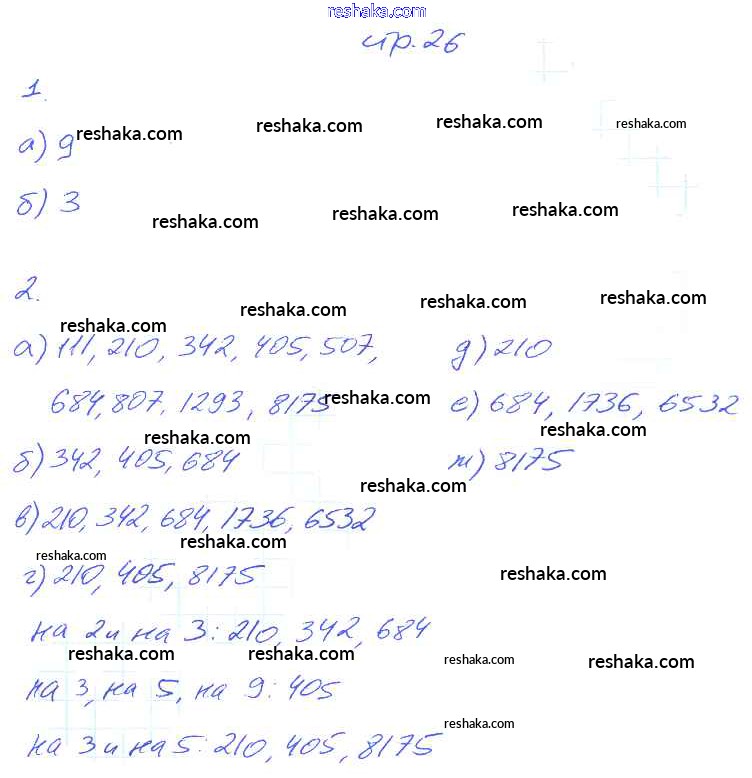 reshaka.com
стр. 26
1.
reshaka.com reshaka.com reshaka.com reshaka.com
а) 9
б) 3
reshaka.com reshaka.com reshaka.com
2.
reshaka.com reshaka.com reshaka.com reshaka.com
а) 111, 210, 342, 405, 507,
684, 807, 1293, 8175
reshaka.com
б) 342, 405, 684
reshaka.com
в) 210, 342, 684, 1736, 6532
reshaka.com
г) 210, 405, 8175
reshaka.com
на 2 и на 3: 210, 342, 684
reshaka.com reshaka.com
на 3, на 5, на 9: 405
на 3 и на 5: 210, 405, 8175
д) 210
е) 684, 1736, 6532
reshaka.com
ж) 8175
reshaka.com
reshaka.com
reshaka.com reshaka.com
reshaka.com